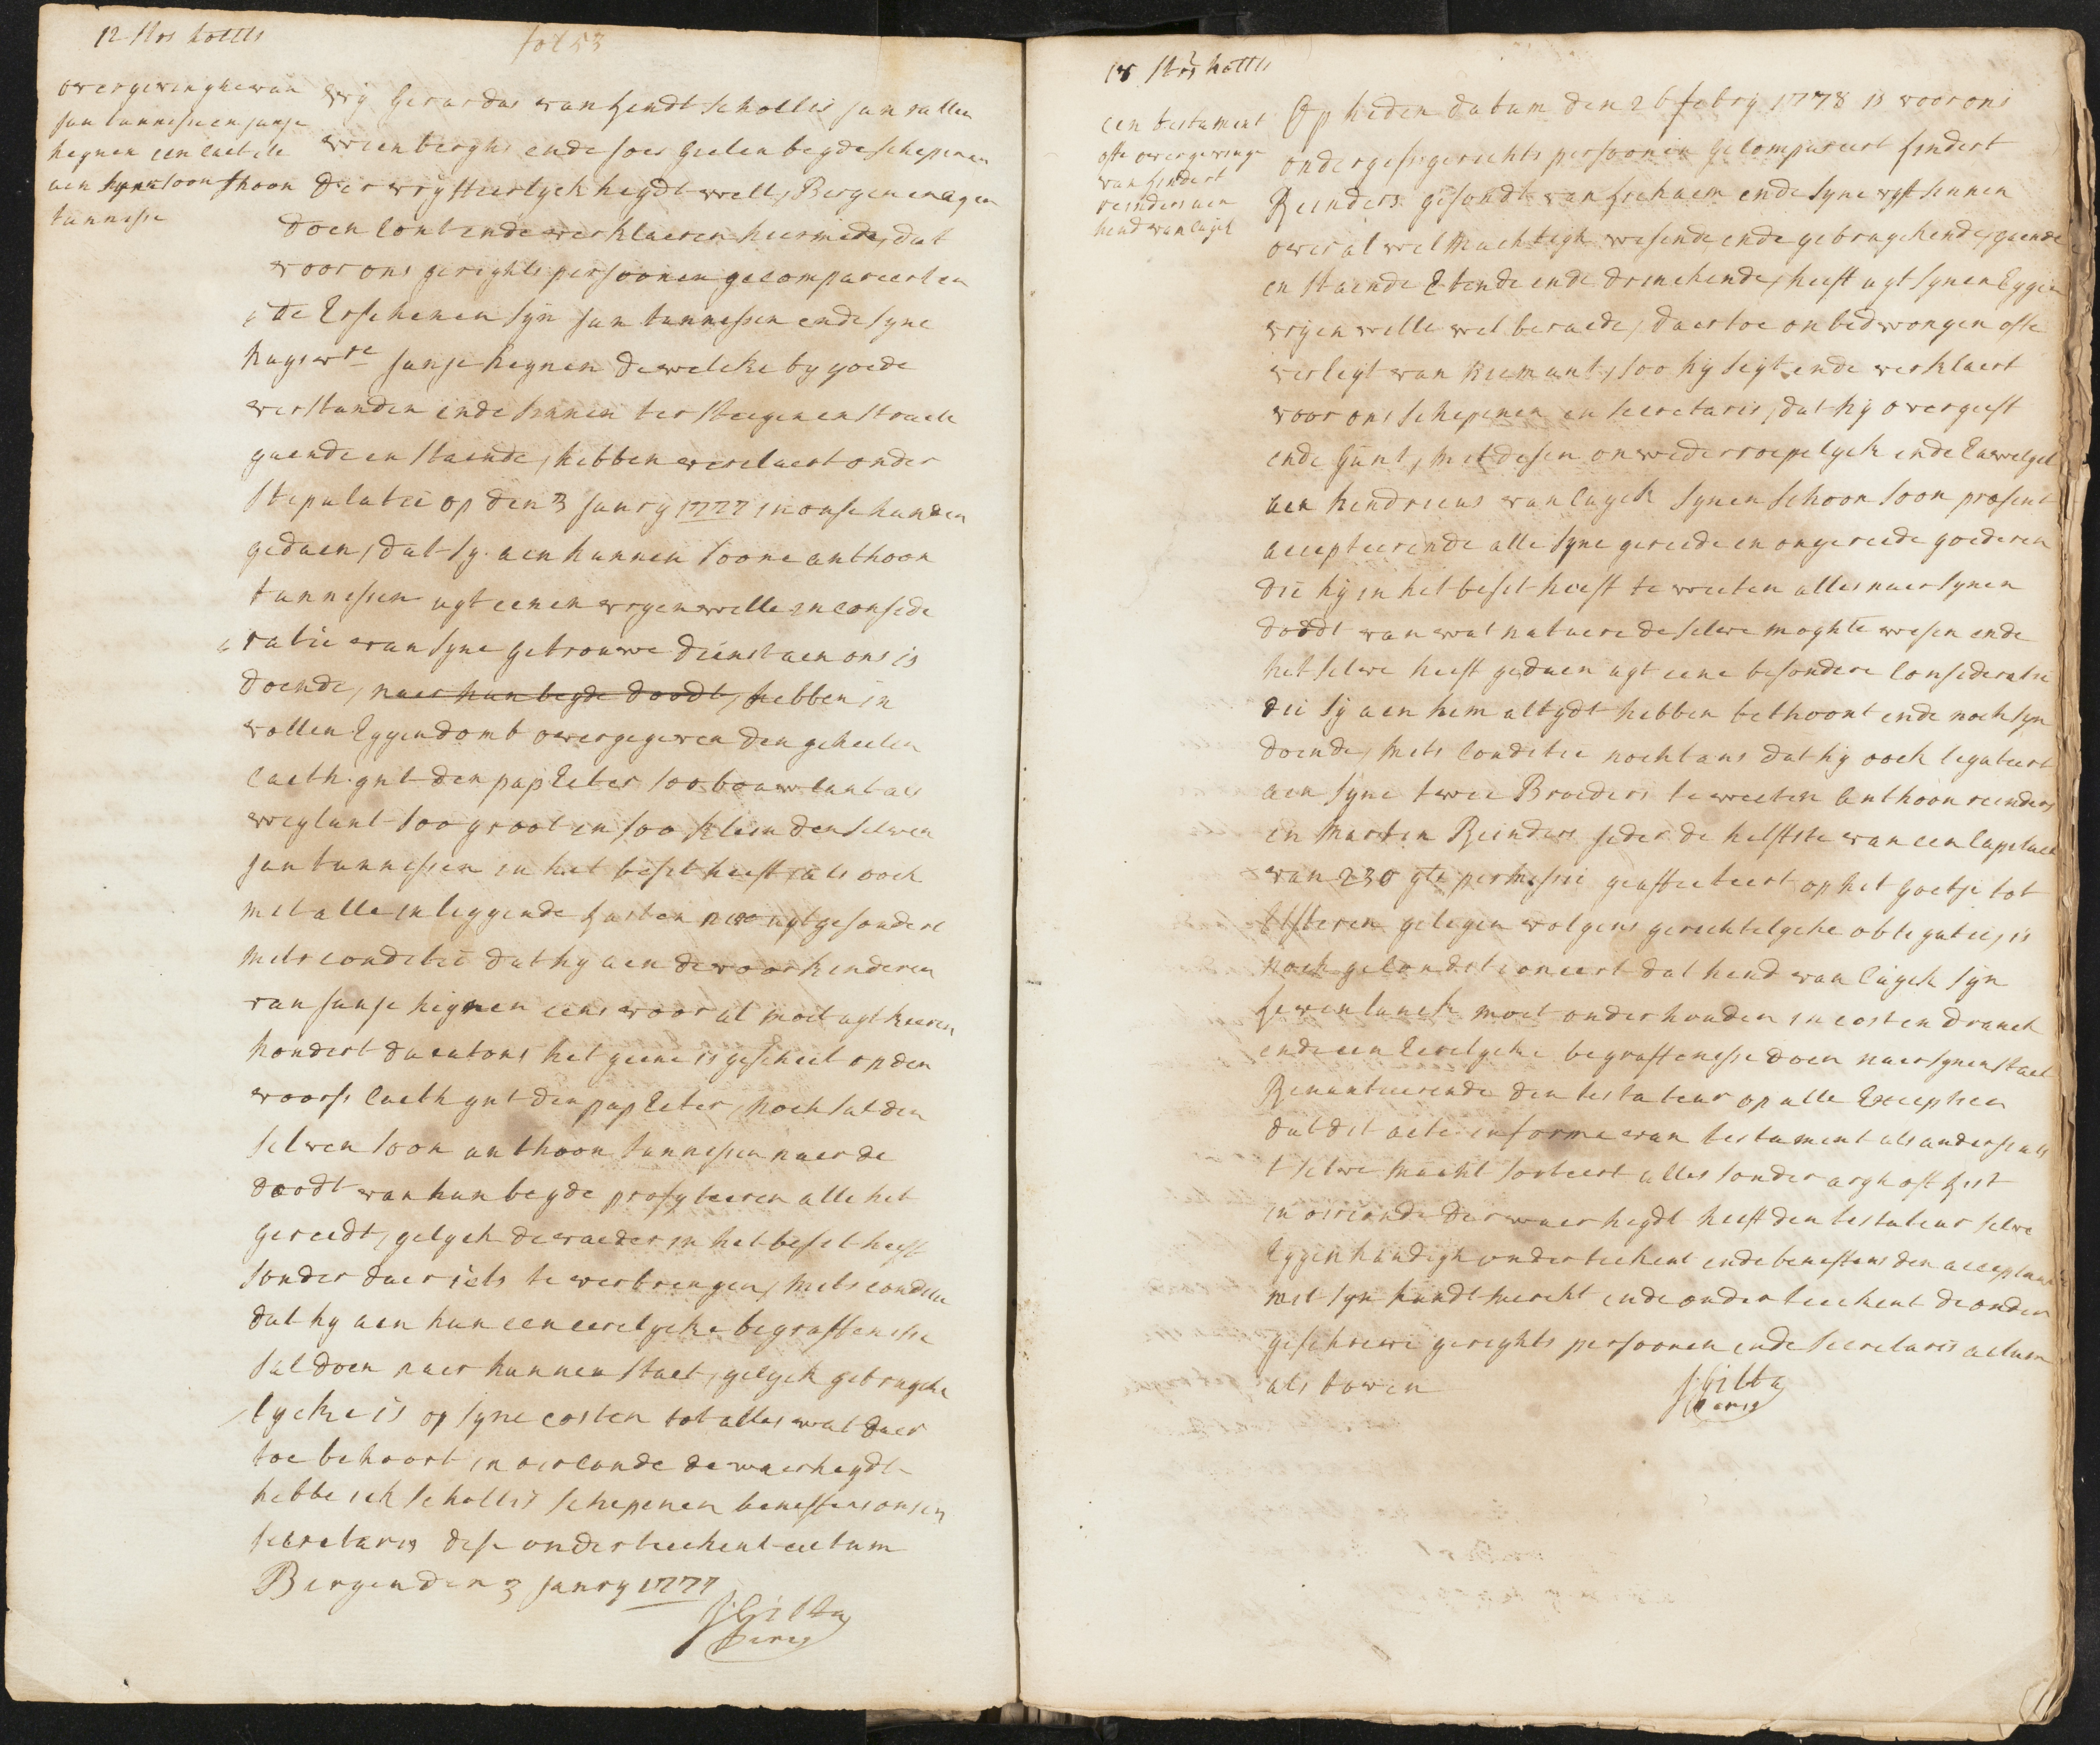 12 stvs
fol 53
overgevinghe van
Jan tannesse en Janje
heynen een caet ile
aen soon thoon
tannesse
Wij Gerardus van Lendt scholtis Jan vallen
vrienberghs ende Joes Gielen beyde schepenen
der vrij heydt well, Bergen en ayen
doen cont ende verklaeren hiermede, dat
voor ons gerights persoonen gecompareert en
de Erschenen sijn Jan tannessen ende syne
huysvre Janje heynen dewelcke by goede
verstanden ende sinnen ter steegen en straete
gaende en staende, hebben verclaert onder
stepulatie op den 3 Janry 1777 in onse handen
gedaen, dat sy aen hunnen soone anthoon
tannessen uyt eenen vryen wille in conside
ratie van syne getrouwe dienst aen ons is
doende, naer hun beyde doodt, hebben in
vollen Eygendomb overgegeven den geheelen
caeth gnt den pap Eeter soo bouwlant als
weylant soo groot en soo klein denselven
Jan tannessen in het beset heeft, als ook
met alle inleggende lasten uytgesondert
mets conditie dat hy aen de voorkinderen
van Janje heynen eens vooral moet uytkeeren
hondert ducatons het geene is geschiet op den
voorss caeth gnt den pap Eeter, noch sal den
selven soon anthoon tannessen naer de
doodt van hun beyde profyteeren alle het
gereedt, gelyck de vaeder in het beset heeft
sonder daer iets te verbrengen, mets conditie
dat hy aen hun een eerelycke begraffenisse
sal doen naer hunnen staet, gelyck gebruycke
lycke is op syne costen tot alles wat daer
toe behoort, in oirconde de waerheydt
hebbe ick scholtis schepenen beneffens onsen
secretaris dese onderteekent actum
Bergen den 3 Janry 1777
18 stvs
een testament
ofte overgevinge
van Lindert
reinders aen
hend van luyck
Op heden datum den 26 febry 1778 is voor ons
ondergess gerichts persoonen gecompareert Lindert
Reinders gesondt van lichaem ende syne vyff sinnen
over al wel machtigh wesende ende gebruyckende, gaende
en staende Etende ende drinckende, heeft uyt synen Eygen
vryen wille wel beraede, daertoe onbedwongen ofte
verleyt van niemant, soo hy segt ende verklaert
voor ons schepenen en secretaris, dat hy overgeeft
ende gunt, met desen onwederroepelyck ende Euwelyck
aen hendricus van luyck synen schoon soon present
accepteerende alle syne gereede en ongereede goederen
die hy in het beset heeft te weeten alles naer synen
doodt van wat natuere deselve moghte wesen ende
het selve heeft gedaen uyt eene besondere consideratie
die sy aen hem altydt hebben bethoont ende noch syn
doende, mets conditie nochtans dat hy ooch legateert
aen syne twee Broeders te weeten anthoon reinders
en marten Reinders jeder de helffte van een capitael
van 230 gls permissie geaffecteert op het goetje tot
Elsteren gelegen volgens gerechtelycke obligatie, is
noch geconditioneert dat hend van luyck syn
leven lanck moet onderhouden in cost en dranck
ende een Eerelycke begraffenisse doen naer synen staet
Renuntieerende den testateur op alle Exceptien
dat dit acte in forme van testament als anders als
t selve macht sorteert alles sonder argh oft List
in oirconde der waerheydt heeft den testateur selve
Eygenhandigh onderteekent ende beneffens den acceptant
met syn handt merckt ende onderteeckent de onder
geschreve gerights persoonen ende secretaris actum
als boven